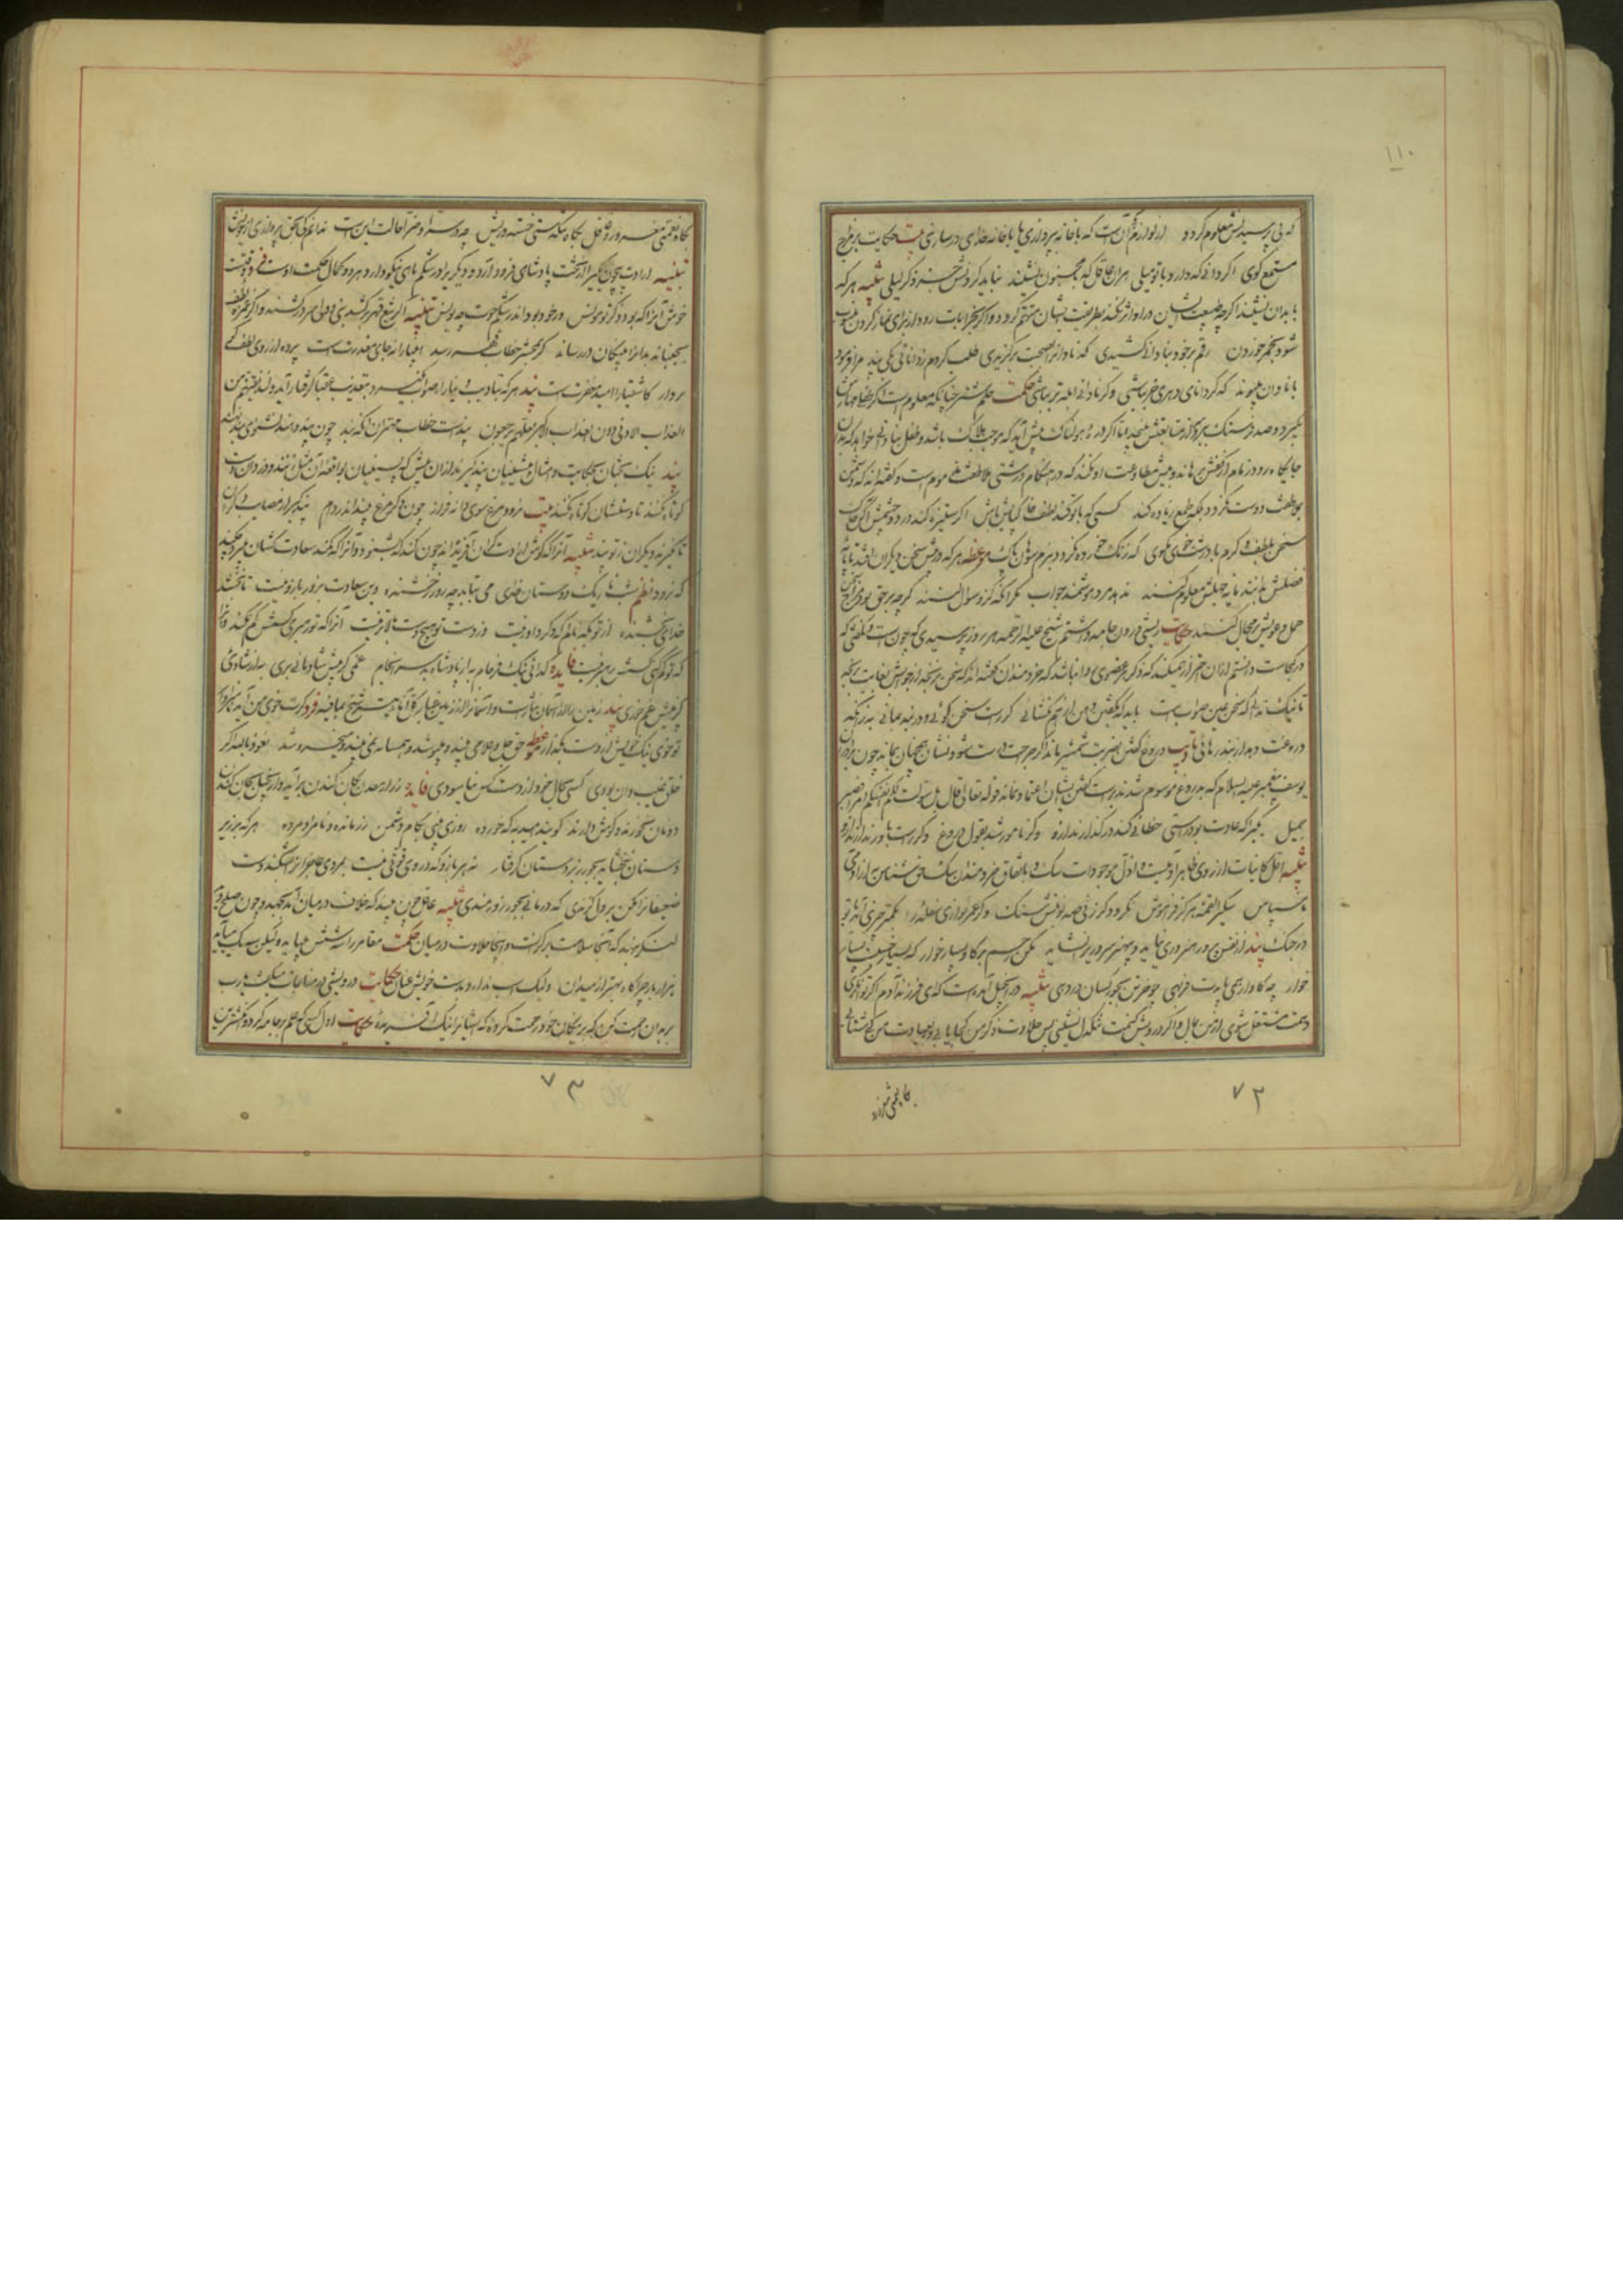 ۱۱۰
که بی پرسیدنش معلوم کردد از لوازم صحبت آن است که یا خانه بپردازی یا با خانه خدای درسازی بیت حکایت بر مزاج
مستمع گوی اگر دانی که دارد با تو میلی هر آن عاقل که با مجنون نشیند نباید کردنش جز ذکر لیلی تنبیه هر که
با بدان نشیند اگر چه طبیعت ایشان در او اثر نکند بطریقت ایشان متهم کردد و اگر بخرابات رود از برای نماز کردن منسوب
شود بخمر خوردن رقم بر خود بنادانی کشیدی که نادان را بصحبت برگزیدی طلب کردم ز دانائی یکی پند مرا فرمود
با نادان مپیوند که گر دانای دهری خر بباشی وگر نادانی ابله تر بباشی حکمت حلم شتر چنانکه معلوم است اگر طفلی مهارش
بگیرد و صد فرسنگ برد از متابعتش نپیچد اما اگر دره هولناک پیش آید که موجب هلاک باشد و طفل بنادانی خواهد که بدان
جایگاه رود زمام از کفش برهاند و بیش مطاوعت او نکند که در هنگام درشتی ملاطفت مذموم است و گفته اند که دشمن
بملاطفت دوست نگردد بلکه طمع زیاده کند کسی که با تو کند لطف خاک پایش باش اگر ستیزه کند در دو چشمش آکن خاک
سخن بلطف و کرم با درشت خوی مگوی که زنگ خورده نگردد بنرم سوهان پاک موعظه هر که در پیش سخن دیگران افتد تا پایه
فضلش بدانند پایه جهلش معلوم کنند ندهد مرد هوشمند جواب مگر آنکه کزو سوال کنند گرچه بر حق بود مزاج سخن
حمل دعویش بر محال کنند حکایت ریشی درون جامه داشتم شیخ علیه الرحمه هر روز پرسیدی که چون است و نگفتی که
در کجاست دانستم از آن احتراز میکند که ذکر هر عضوی روا نباشد که خردمندان گفته اند که سخن بر نسنجد از جوابش بغایت برنجد
تا نیک ندانی که سخن عین صواب است باید که بگفتن دهن از هم نگشائی گر راست سخن گوئی و در بند بمانی به زانکه
دروغت دهد از بند رهائی تادیب دروغ گفتن بضربت شمشیر ماند اگر جراحت درست شود و نشان همچنان بماند چون برادران
یوسف پیغمبر علیه السلام که بدروغ موسوم شدند بر راست گفتن ایشان اعتماد نماند قوله تعالی قال بل سولت لکم انفسکم امرا فصبر
جمیل یکیرا که عادت بود راستی خطائی کند در گذارند ازو وگر نامور شد بقول دروغ دگر راست باور ندارند ازو
تنبیه اجل کاینات از روی ظاهر آدمیست و اذل موجودات سگ و باتفاق خردمندان سگ حق شناس به از آدمی
ناسپاس سگی را لقمه هرگز فراموش نگردد گر زنی صد نوبتش سنگ وگر عمری نوازی سفله را بکمتر چیزی آید با تو
در جنگ پند از نفس پرور هنروری نیاید و بی هنر سروری را نشاید مکن رحم بر گاو بسیار خوار که بسیار خسبست بسیار
خوار چو گاو ار همی بایدت فربهی چو خر تن بجور کسان در دهی تنبیه در انجیل آمده است که ای فرزند آدم اگر توانگری
دهمت مشتغل شوی از من بمال و اگر درویش کنمت تنگدل نشینی پس حلاوت ذکر من کجا یابی و بعبادت من کی شتابی
گاه نعمتی مغرور
۷۲
گاه نعمتی مغرور و غافل گاه تنگدستی خسته و ریش چو در سرا و ضرا حالت این است ندانم کی بحق پردازی از خویش
تنبیه ارادت بیچون یکیرا از تخت پادشاهی فرود آرد و دیگریرا در شکم ماهی نیکو دارد هر دو کمال حکمت اوست فرد وقتیست
خوش آنرا که بود ذکر تو مونس ور خود بود اندر شکم حوت چو یونس تنبیه اگر تیغ قهر برکشد نبی و ولی سر درکشند و اگر غمزه لطف
بجنباند بدانرا بنیکان در رساند گر بمحشر خطاب قهر رسد انبیا را نه جای معذرت است پرده از روی لطف گو
بردار کاشقیا را امید مغفرت است پند هر که بتادیب دنیا راه صواب نسپرد بتعذیب عقبا گرفتار آید ولنذیقنهم من
العذاب الادنی دون العذاب الاکبر لعلهم یرجعون پندست خطاب مهتران آنگه بند چون پند دهند نشنوی بند نهند
پند نیک بختان بحکایت و امثال پیشینیان پند گیرند از آن پیش که پسینیان بواقعه آن مثل زنند و دزدان دست
کوتاه نکنند تا دستشان کوتاه نکنند بیت نرود مرغ سوی دانه فراز چون دگر مرغ بیند اندر دام پند گیر از مصایب دگران
تا نگیرند دیگران ز تو پند تنبیه آنرا که گوش ارادت گران آفریده اند چون کند که بشنود و آنرا که کمند سعادت کشان میبرد چکند
که نرود نظم شب تاریک دوستان خدای می بتابد چو روز رخشنده وین سعادت بزور بازو نیست تا نبخشد
خدای بخشنده از تو بکه نالم که دگر داور نیست وز دست تو هیچ دست بالاتر نیست آنرا که تو رهبری کسش گم نکند وآنرا
که تو گم کنی کسش رهبر نیست فایده گدائی نیک فرجام به از پادشاه بد سرانجام غمی کز پیش شادمانی بری به از شادئی
کز پیش غم خوری پند زمین را از آسمان نثارست و آسمانرا از زمین غبار کل اناء یترشح بما فیه فرد گرت خوی من آمد ناسزاوار
تو خوی نیک خویش از دست مگذار موعظه حق جل و علا می بیند و میپوشد و همسایه نمی بیند و میخروشد نعوذ بالله اگر
خلق غیب دان بودی کسی بحال خود از دست کس نیاسودی فایده زر از معدن بکان کندن برآید و از بخیل بجان کندن
دونان نخورند و گوش دارند گویند امید به که خورده روزی بینی بکام دشمن زر مانده و نامراد مرده هر که بر زیر
دستان نبخشاید بجور زبردستان گرفتار نه هر بازو که در وی قوتی هست بمردی عاجزانرا بشکند دست
ضعیفانرا مکن بر دل گزندی که درمانی بجور زورمندی تنبیه عاقل چون بیند که خلاف در میان آمد بجهد و چون صلح دید
لنگر بنهد که آنجا سلامت بر کرانست و اینجا حلاوت در میان حکمت مقامر را سه شش میباید ولیکن سه یک میآید
هزار بار چراگاه بهتر از میدان ولیک اسب ندارد بدست خویش عنان حکایت درویشی در مناجات میگفت یا رب
بر بدان رحمت کن که بر نیکان خود رحمت کرده که ایشانرا نیک آفریده حکایت اول کسی که علم بر جامه کرد و انگشتری
۷۳